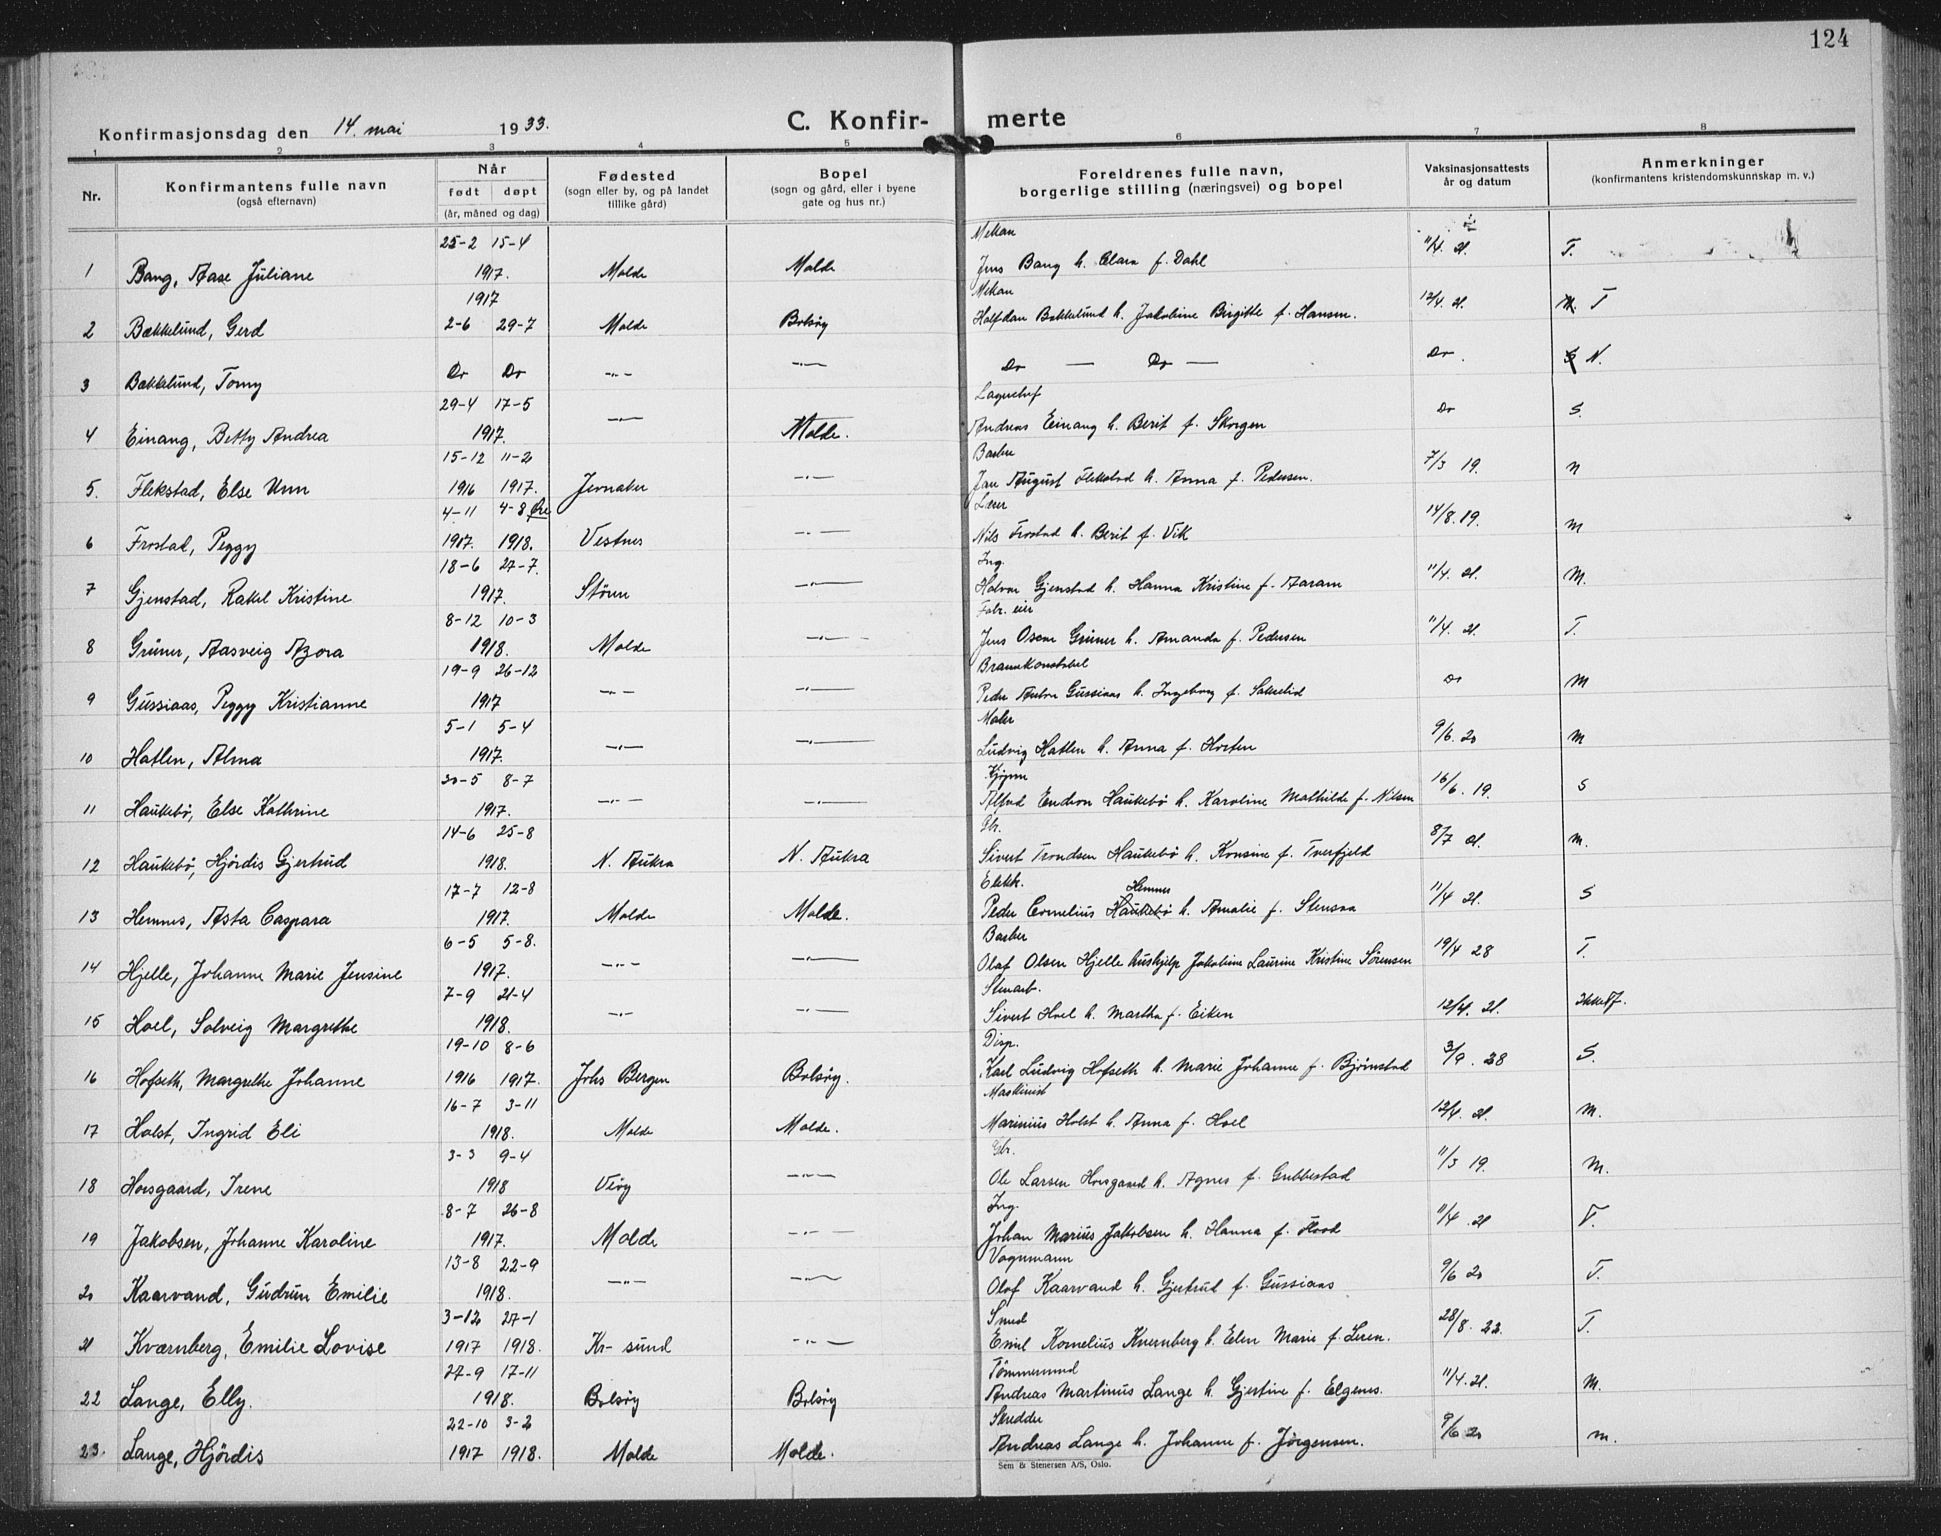 124
Konfirmasjonsdag den 14. mai 1933.
C. Konfir- merte
1 2 3 4 5 6 7 8
Nr.
Konfirmantens fulle navn
(også efternavn)
Når
født døpt
(år, måned og dag)
Fødested
(sogn eller by, og på landet
tillike gård)
Bopel
(sogn og gård, eller i byene
gate og hus nr.)
Foreldrenes fulle navn,
borgerlige stilling (næringsvei) og bopel
Vaksinasjonsattests
år og datum
Anmerkninger
(konfirmantens kristendomskunnskap m. v.)
25-2 15-4 Mekan
1 Bang, Aase Juliane 1917. Molde Molde Jens Bang h. Clara f. Dahl 11/4. 21. T.
1917 Mekan
2 Bækkelund, Gerd 2-6 29-7 Molde Bolsøy Halfdan Bækkelund h. Jakobine Birgitte f. Hansen. 12/4. 21. T
3 Bækkelund, Tomy Do Do -"- -"- Do — Do — Do. N.
29-4 17-5
4 Einang, Betty Andrea 1917. -"- Molde. Andreas Einang h. Berit f. Skorgen Do S.
15-12 11-2 Barber
5. Flekstad, Else Unn 1916 1917. Jevnaker -"- Jan August Flekstad h. Anna f. Pedersen. 7/3 19. n
4-11 4-8 Øre Lærer
6 Frostad, Peggy 1917. 1918. Vestnes -"- Nils Frostad h. Berit f. Vik 14/8. 19. m
18-6 27-7. Ing.
7 Gjenstad, Rakel Kristine 1917. Støren -"- Halvor Gjenstad h. Hanna Kristine f. Aaram 11/4. 21. M.
8-12 10-3 Fabr. eier
8 Grüner, Aasveig Azora 1918. Molde -"- Jens Oscar Grüner h. Amanda f. Pedersen 11/4. 21. T.
19-9 26-12 Brannkonstabel
9 Gussiaas, Peggy Kristianne 1917 -"- -"- Peder Anton Gussiaas h. Ingeborg f. Do M
5-1 5-4 Maler
10 Hatlen, Alma 1917. -"- -"- Ludvig Hatlen h. Anna f. Horten 9/6. 20 M
30-5 8-7
11 Haukebø, Else Kathrine 1917. -"- -"- Alfred Endron Haukebø h. Karoline Mathilde f. Nilsen 16/6. 19. S
14-6 25-8 Gbr.
12 Haukebø, Hjørdis Gjertrud 1918. N. Aukra N. Aukra Sivert Trondsen Haukebø h. Konsine f. Tverfjeld 8/7 21. m.
17-7 12-8 Elektr. Hemnes
13 Hemnes, Asta Caspara 1917. Molde Molde. Peder Cornelius Haukebø h. Amalie f. Stensaa 11/4 21. S
6-5 5-8. Barber
14 Hjelle, Johanne Marie Jensine 1917. -"- -"- Olaf Olsen Hjelle hushjelp Jakobine Laurine Kristine Sørensen 19/4 28 T.
7-9 21-4 Stenarb.
15 Hoel, Solveig Margrethe 1918. -"- -"- Sivert Hoel h. Martha f. Eiken 12/4. 21.
19-10 8-6 Disp.
16 Hofseth, Margrethe Johanne 1916 1917. Johs Bergen Bolsøy. Karl Ludvig Hofseth h. Marie Johanne f. Bjørnstad 3/9. 28 S.
16-7 3-11 Maskinist
17 Holst, Ingrid Eli 1918. Molde Molde. Marinius Holst h. Anna f. Hoel 12/4. 21. M.
3-3 9-4 Gbr.
18 Horsgaard, Irene 1918 Veøy -"- Ole Larsen Horsgaard h. Agnes f. Grebbestad 11/3 19. M.
8-7 26-8 Ing.
19 Jakobsen, Johanne Karoline 1917. Molde -"- Johan Marius Jakobsen h. Hanna f. Flood 11/4. 21 T.
13-8 22-9 Vognmann
20 Kaarvand, Gudrun Emilie 1918. -"- -"- Olaf Kaarvand h. Gjertrud f. Gussiaas 9/6 20 T.
3-12 27-1 Smed
21 Kværnberg, Emilie Lovise 1917 1918. Kr- sund -"- Emil Kornelius Kvernberg h. Elen Marie f. Leren. 28/8. 22. T.
27-9 17-11 Tømmermand
22 Lange, Elly. 1918. Bolsøy Bolsøy Andreas Martinus Lange h. Gjertine f. Elgenes. 11/4. 21. M.
22-10 3-2 Skredder
23. Lange, Hjørdis 1917 1918. Molde Molde. Andreas Lange h. Johanne f. Jørgensen. 9/6 20 m.
Sem & Stenersen A/S, Oslo.